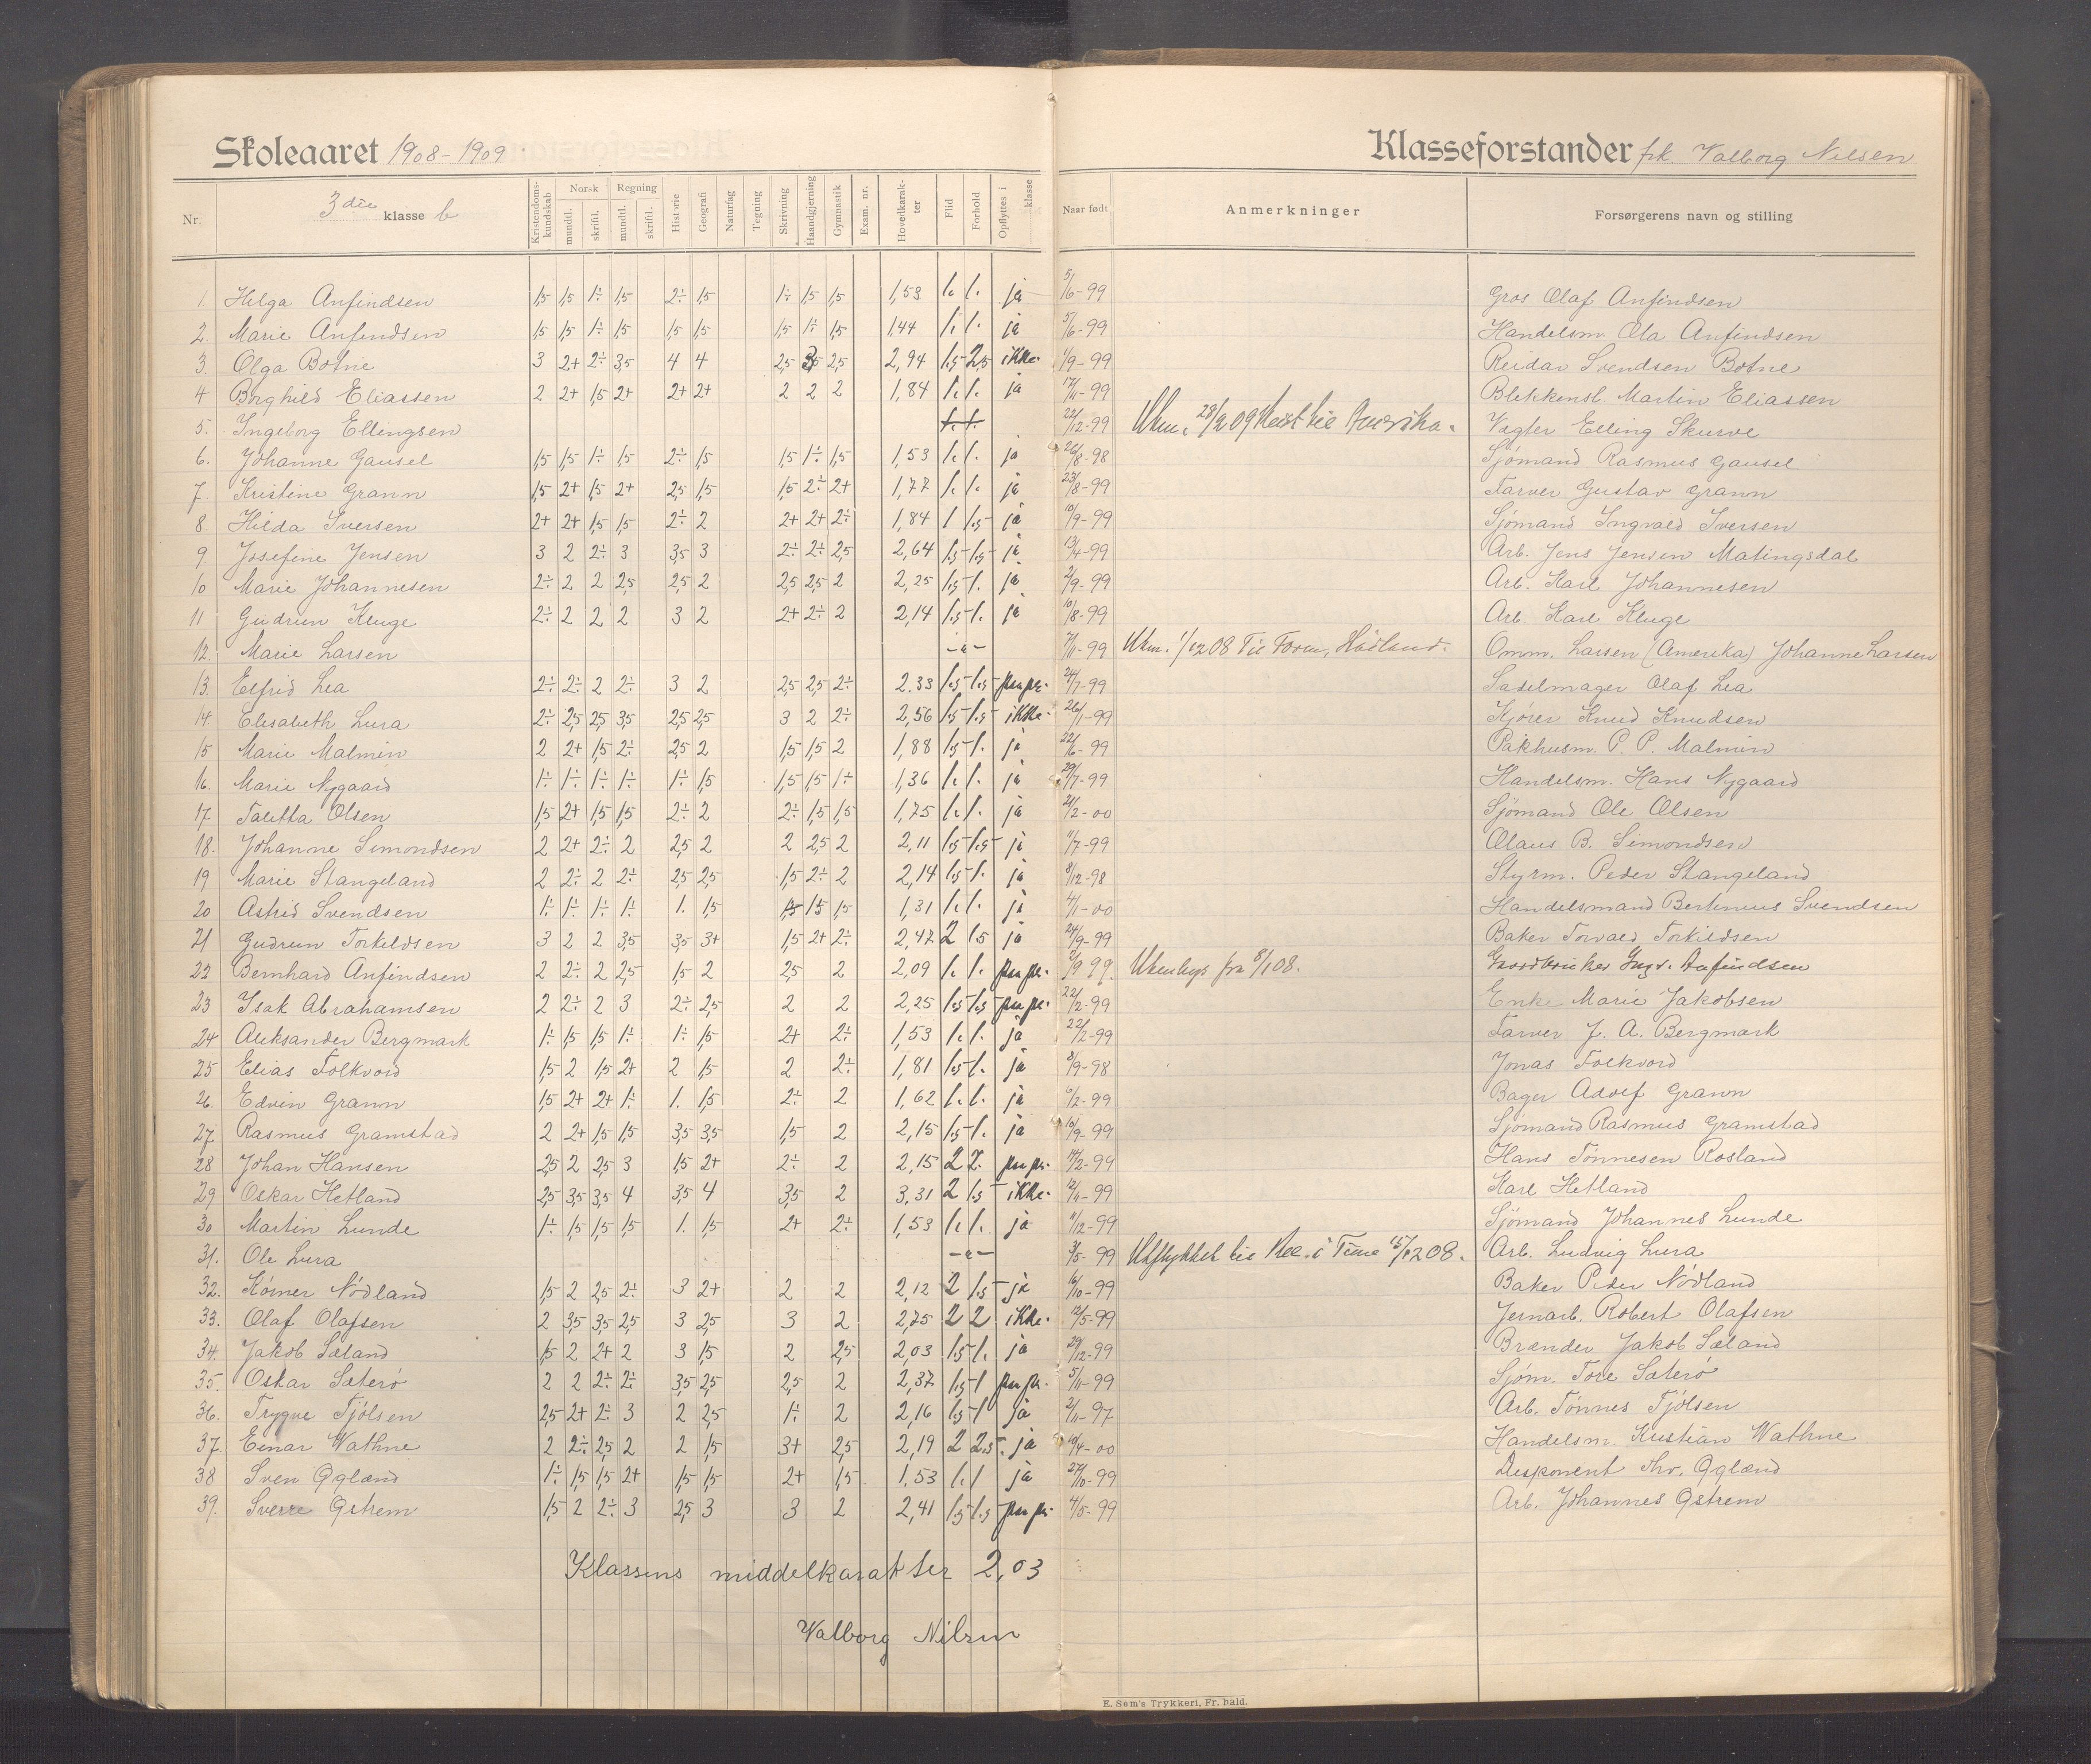 Skoleaaret 1908-1909
Klasseforstander frk. Valborg Nilsen
Nr. 3die klasse b Kristendomskundskab Norsk mundtl. skriftl. Regning mundtl. skriftl. Historie Geografi Naturfag Tegning Skrivning Haandgjerning Gymnastik Exam. nr. Hovedkarakter Flid Forhold Opflyttes i klasse Naar født Anmerkninger Forsørgerens navn og stilling
1. Helga Anfindsen 1,5 1,5 1÷ 1,5 2÷ 1,5 1÷ 1,5 1,5 1,53 1. 1. ja 5/6-99 Gros Olaf Anfindsen
2. Marie Anfindsen 1,5 1,5 1÷ 1,5 1,5 1,5 1,5 1÷ 1,5 1,44 1. 1. ja 5/6-99 Handelsm. Ola Anfindsen
3. Olga Botne 3 2+ 2÷ 3,5 4 4 2,5 2,5 2,94 1.5 2.5 ikke. 1/9-99 Reidar Svendsen Botne
4 Borghild Eliassen 2 2+ 1,5 2+ 2+ 2+ 2 2 2 1,84 1. 1. ja 17/11-99 Blikkensl. Martin Eliassen
5. Ingeborg Ellingsen 22/12-99 Utm. 28/2 09 Reist til Amerika. Vagter Elling Skurve
6. Johanne Gausel 1,5 1,5 1÷ 1,5 2÷ 1,5 1,5 1÷ 1,5 1,53 1. 1. ja 26/8-98 Sjømand Rasmus Gausel
7. Kristine Grann 1,5 2+ 1,5 2+ 2,5 1,5 1,5 2÷ 2+ 1,77 1. 1. ja 23/8-99 Farver Gustav Grann
8. Hilda Iversen 2+ 2+ 1,5 1,5 2÷ 2 2+ 2+ 2÷ 1,84 1 1.5 ja 10/9-99 Sjømand Ingvald Iversen
9 Josefine Jensen 3 2 2÷ 3 3,5 3 2÷ 2÷ 2,5 2,64 1.5 1.5 ja 13/4-99 Arb. Jens Jensen Matingsdal
10 Marie Johannesen 2÷ 2 2 2,5 2,5 2 2,5 2,5 2 2,25 1.5 1. ja 2/9-99 Arb. Karl Johannesen
11 Gudrun Kluge 2÷ 2 2 2 3 2 2+ 2÷ 2 2,14 1.5 1. ja 10/8-99 Arb. Karl Kluge
12. Marie Larsen -"- 7/11-99 Utm. 1/12 08 Til Form, Hadland. Omm. Larsen (Amerika) Johanne Larsen
13. Elfrid Lea 2÷ 2÷ 2 2÷ 3 2 2,5 2,5 2÷ 2.33 1.5 1.5 paa pr. 24/7-99 Sadelmager Olaf Lea
14. Elisabeth Lura 2÷ 2,5 2,5 3,5 2,5 2,5 3 2 2÷ 2,56 1.5 1.5 ikke. 26/1-99 Kjører Knud Knudsen
15 Marie Malmin 2 2+ 1,5 2÷ 2,5 2 1,5 1,5 2 1,88 1.5 1. ja 22/6-99 Pakhusm. P. P. Malmin
16. Marie Nygaard 1÷ 1÷ 1÷ 1÷ 1÷ 1,5 1,5 1,5 1÷ 1,36 1. 1. ja 29/7-99 Handelsm. Hans Nygaard
17. Taletta Olsen 1,5 2+ 1,5 1,5 2÷ 2 2÷ 1,5 1,5 1,75 1. 1. ja 21/2-00 Sjømand Ole Olsen
18. Johanne Simondsen 2 2+ 2÷ 2 2,5 2 2 2,5 2 2,11 1.5 1.5 ja 11/7-99 Olaus B. Simondsen
19 Marie Stangeland 2 2÷ 2 2÷ 2,5 2,5 1,5 2÷ 2 2,14 1.5 1. ja 8/12-98 Styrm. Peder Stangeland
20 Astrid Svendsen 1÷ 1÷ 1÷ 1÷ 1. 1,5 1,5 1,5 1,5 1,31 1. 1. ja 4/1-00 Handelsmand Bertinius Svendsen
21 Gudrun Torkildsen 3 2 2 3,5 3,5 3+ 1,5 2+ 2÷ 2,47 2 1.5 ja 24/9-99 Baker Torvald Torkildsen
22 Bernhard Anfindsen 2 2÷ 2 2,5 1,5 2 2,5 2 2,09 1. 1. paa pr. 2/9 99. fra 8/1 08. Ingv. Anfindsen
23 Isak Abrahamsen 2 2÷ 2 3 2÷ 2,5 2 2 2,25 1.5 1.5 paa pr. 22/2-99 Enke Marie Jakobsen
24 Aleksander Bergmark 1÷ 1,5 1,5 1÷ 1÷ 1,5 2+ 2÷ 1,53 1. 1. ja 22/2-99 Farver J. A. Bergmark
25 Elias Folkvord 1,5 2 1,5 2+ 2 1,5 2 2÷ 1,81 1.5 1. ja 8/9-98 Jonas Folkvord
26. Edvin Grann 1,5 2+ 2+ 1÷ 1. 1,5 2÷ 2 1,62 1. 1. ja 6/2-99 Bager Adolf Grann
27. Rasmus Gramstad 2 2+ 1,5 1,5 3,5 3,5 1,5 2 2,15 1.5 1. ja 10/9-99 Sjømand Rasmus Gramstad
28 Johan Hansen 2,5 2 2,5 3 1,5 2+ 2÷ 2 2,15 2 2. paa pr. 14/2-99 Hans Tønnesen Rosland
29 Oskar Hetland 2,5 3,5 3,5 4 3,5 4 3,5 2 3,31 2 1.5 ikke. 12/11-99 Karl Hetland
30 Martin Lunde 1÷ 1,5 1,5 1,5 1. 1,5 2+ 2÷ 1,53 1. 1. ja 11/12-99 Sjømand Johannes Lunde
31. Ole Lura -"- 3/5-99 Utflyttet til i Time 15/12 08. Arb. Ludvig Lura
32. Kørner Nødland 1,5 2 2,5 2÷ 3 2+ 2 2 2,12 2 1.5 ja 16/10-99 Baker Peder Nødland
33. Olaf Olafsen 2 3,5 3,5 2,5 3 2,5 3 2 2,75 2 2 ikke. 12/5-99 Jernarb. Robert Olafsen
34. Jakob Sæland 1,5 2 2+ 2 3 1,5 2 2,5 2,03 1.5 1. ja 29/12-99 Brænder Jakob Sæland
35. Oskar Saterø 2 2 2÷ 2÷ 3,5 2,5 2,5 2 2,37 1.5 1 paa pr. 5/11-99 Sjøm. Tore Saterø
36. Trygve Tjølsen 2,5 2+ 2÷ 3 2 2,5 1÷ 2 2,16 1.5 1 ja 2/11-97 Arb. Tønnes Tjølsen
37. Einar Wathne 2 2÷ 2,5 2 2 1,5 3+ 2,5 2,19 2 2.5. ja 10/4-00 Handelsm. Kristian Wathne
38 Sven Øglænd 1÷ 1,5 1,5 2+ 1,5 1,5 2+ 1,5 1,53 1. 1 ja 27/10-99 Disponent Øglænd
39. Sverre Østrem 1,5 2 2÷ 3 2,5 3 3 2 2,41 1.5 1.5 paa pr. 4/5-99 Arb. Johannes Østrem
Klassens middelkarakter 2,03
Valborg Nilsen
E. Sem's Trykkeri, Fr.hald.